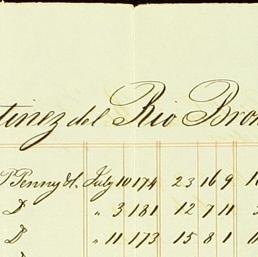 tinez del Rio Bro
Penny &. July 10 174 23 16 9 1
D " 3 181 12 7 11
D " 11 173 15 8 1